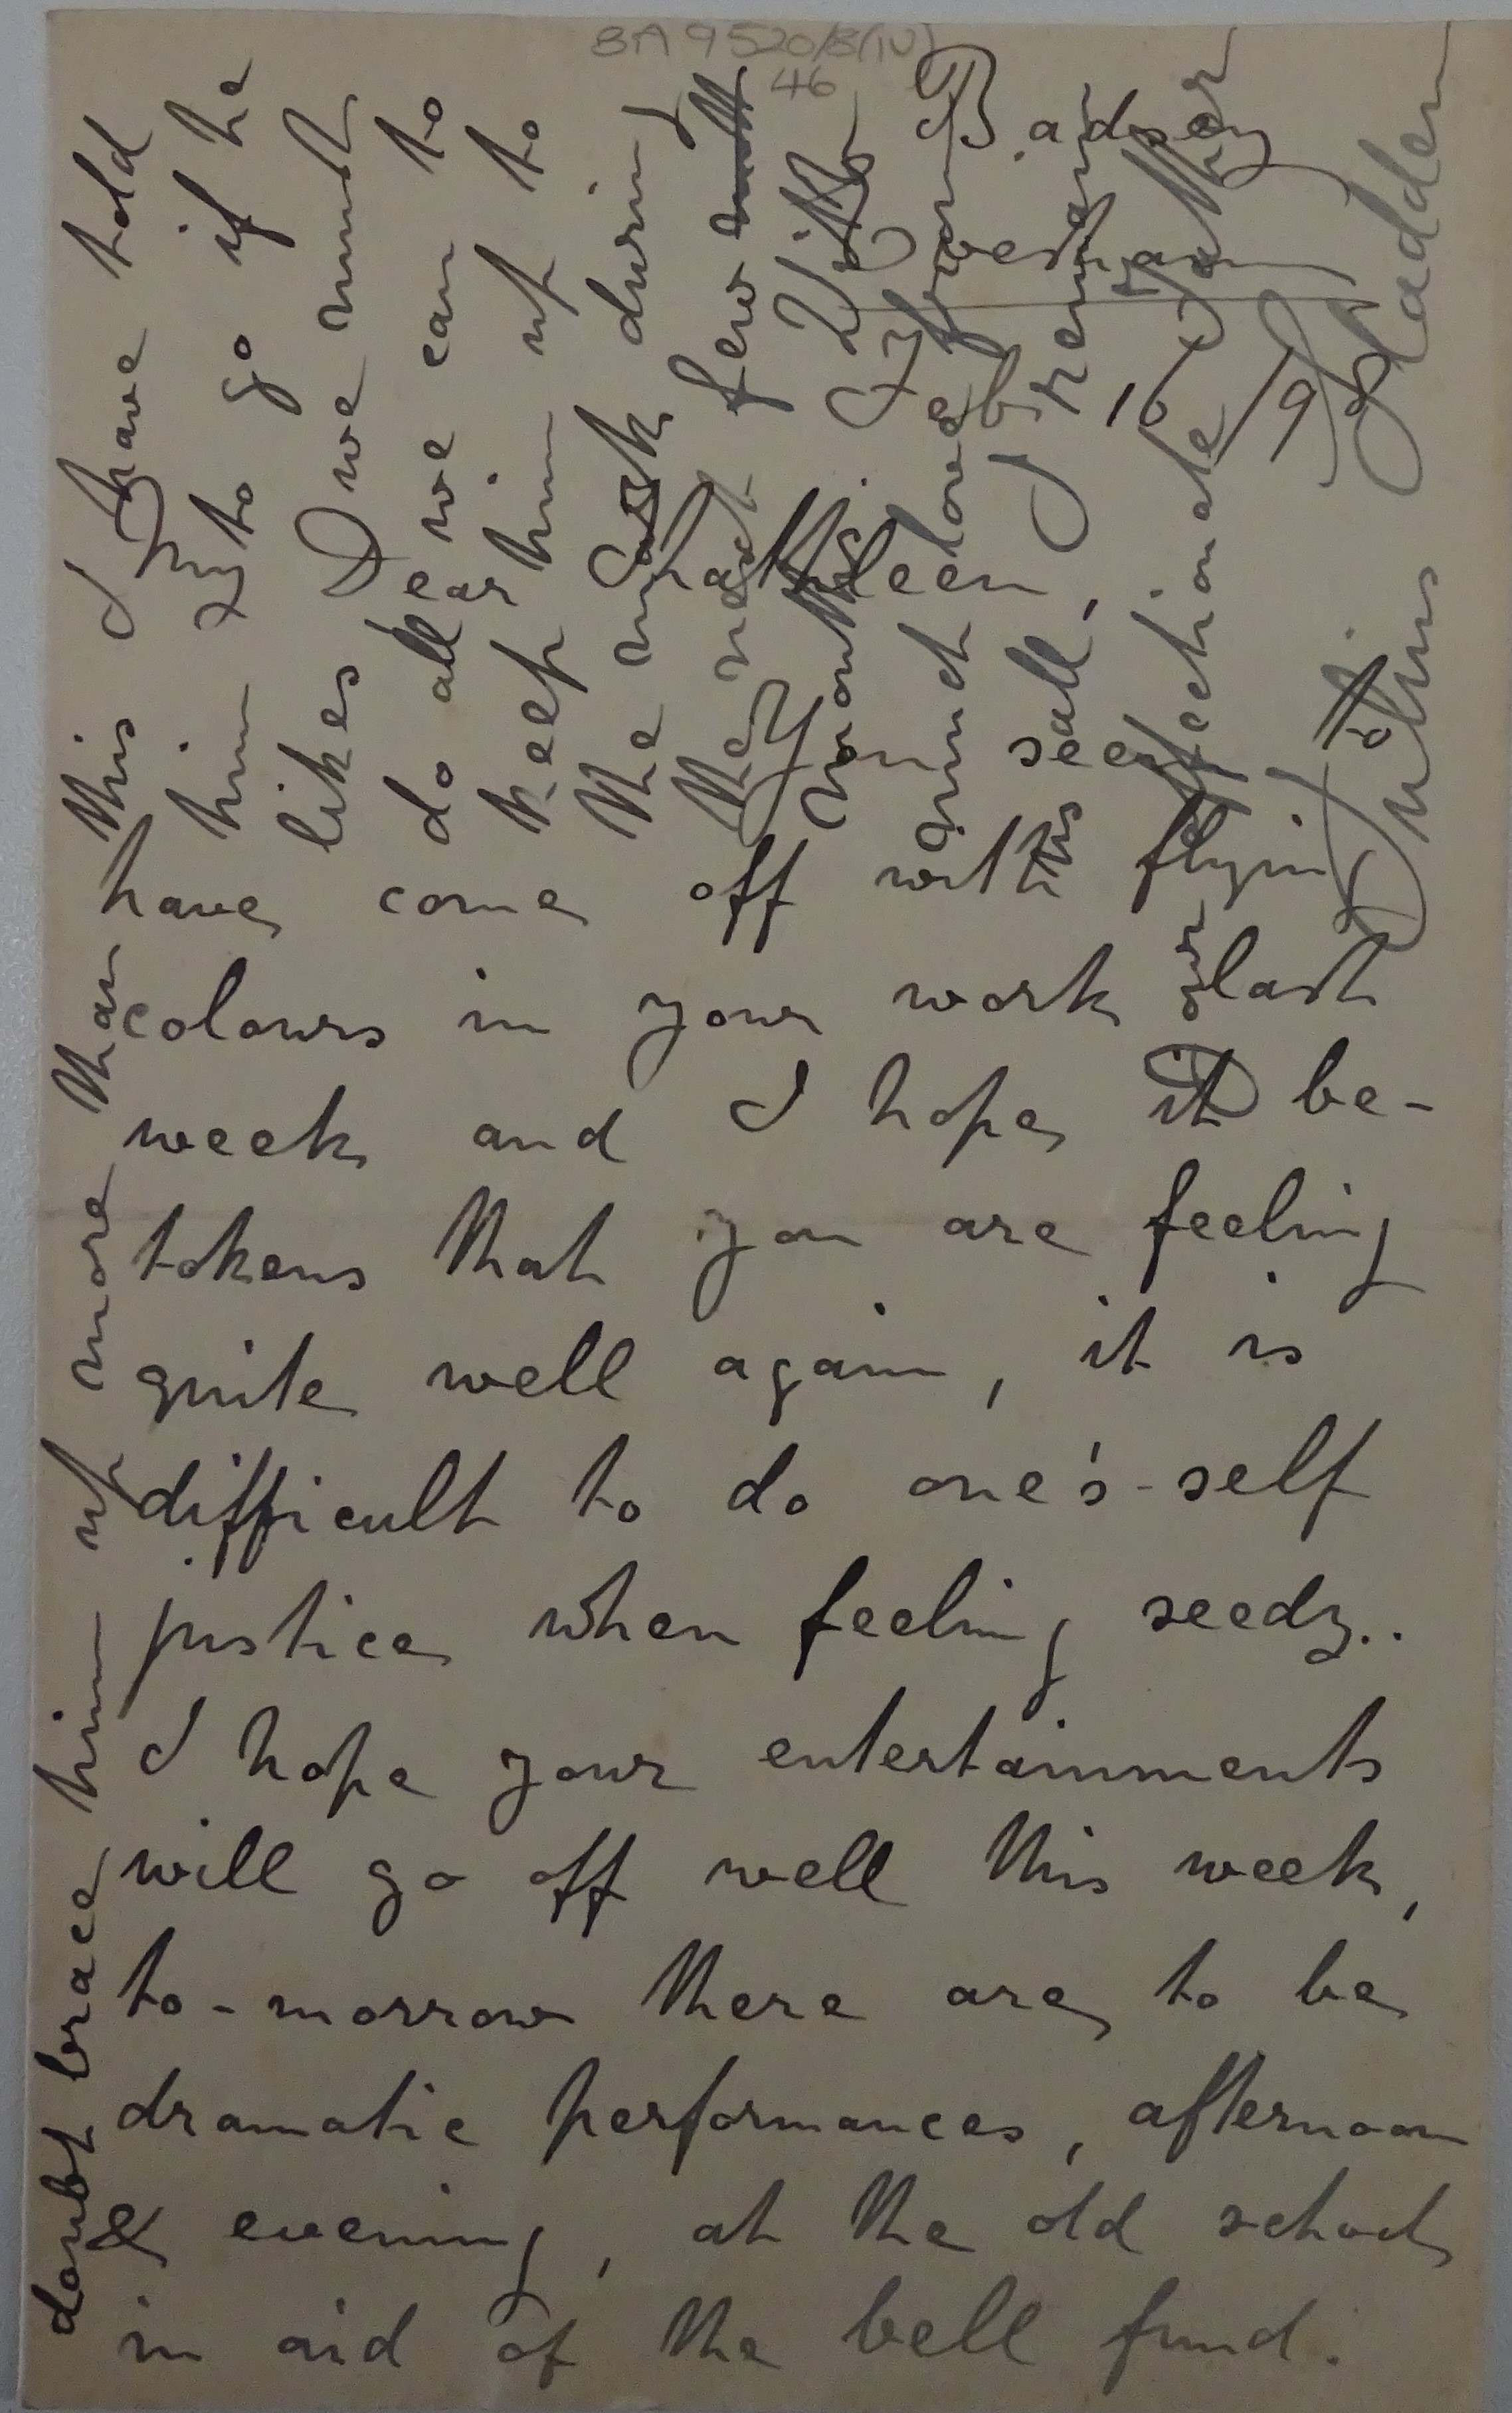 BA 9520/B(IV)
46
Badsey
Evesham
My Dear Kathleen,
You seem to
have come off with flying
colours in your work last
week and I hope it be-
tokens that you are feeling
quite well again, it is
difficult to do one's-self
justice when feeling seedy..
I hope your entertainments
will go off well this week,
to-morrow there are to be
dramatic performances, afternoon
& evening, at the old school
in aid of the bell fund.
doubt brace him up more than this I have told
him to go if he
likes & we must
do all we can to
keep him up to
the mark during
the next few
months. With
much love from
us all, I remain
Your affectionate father
Julius Sladden